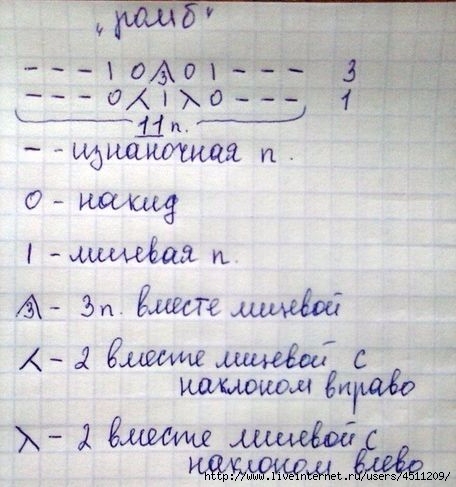 "ромб"
- - - 1 0 3 0 1 - - - 3
- - - 0 ⋌ 1 λ 0 - - - 1
11 п.
- - изнаночная п.
0 - накид
1 - лицевая п.
3 - 3п. вместе лицевой
⋌ - 2 вместе лицевой с
наклоном вправо
λ - 2 вместе лицевой с
наклоном влево
http://www.liveinternet.ru/users/4511209/